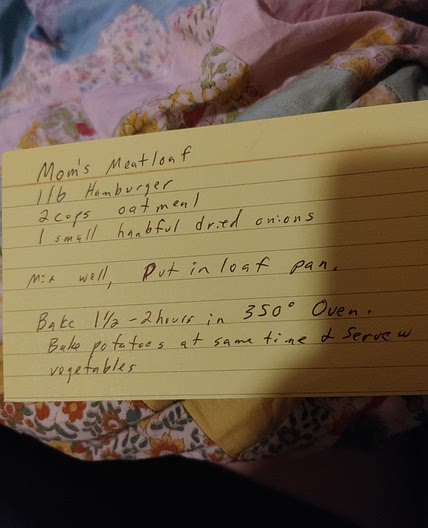 Mom's Meatloaf
1 lb Hamburger
2 cups oatmeal
1 small hanbful dried onions
Mix well, Put in loaf pan.
Bake 1½ - 2 hours in 350° Oven.
Bake potatoes at same time & Serve w
vegetables